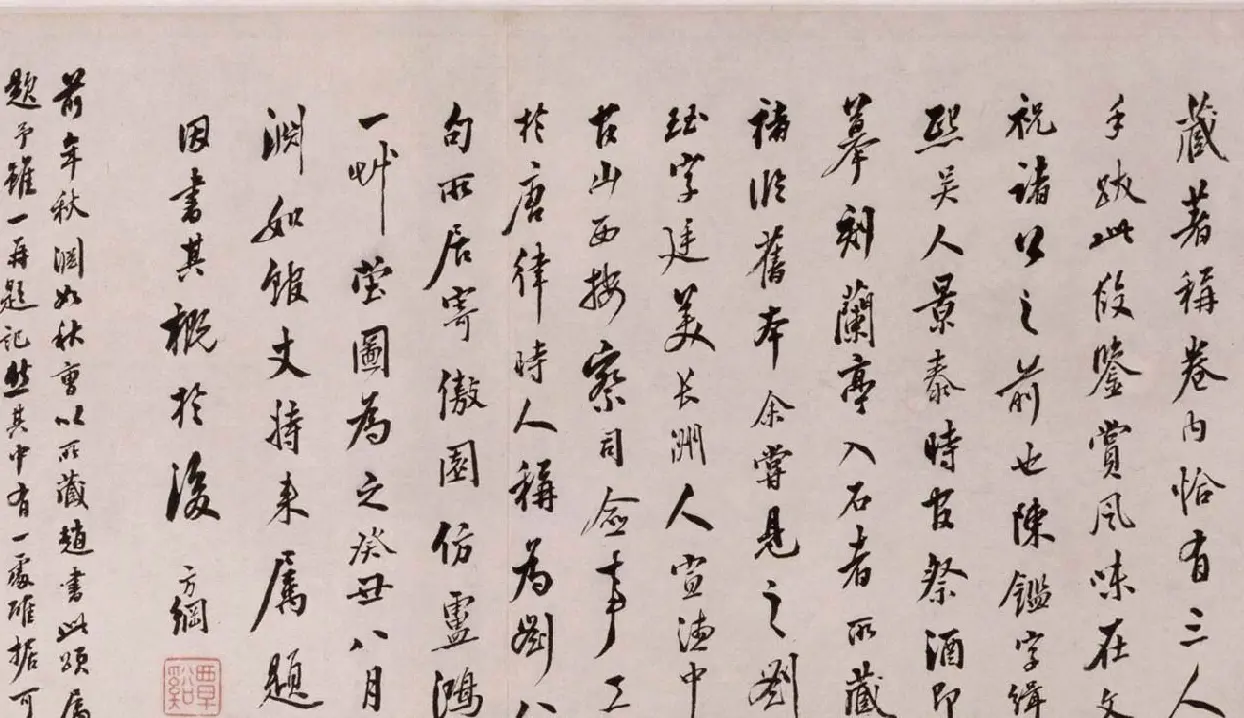 藏著稱卷內恰有三人
手跋此段鑒賞風味在文
祝諸公之前也陳鑑字緝
熙吳人景泰時官祭酒即
摹刻蘭亭入石者所藏
褚臨舊本余嘗見之劉
珏字廷美長洲人宣德中
官山西按察司僉事工
於唐律時人稱為劉八
句所居寄傲園仿盧鴻
一艸堂圖為之癸丑八月
淵如館丈持來屬題
因書其概於後 方綱
覃谿
前年秋淵如秋曹以所藏趙書此頌屬
題予雖一再題記然其中有一處確據可